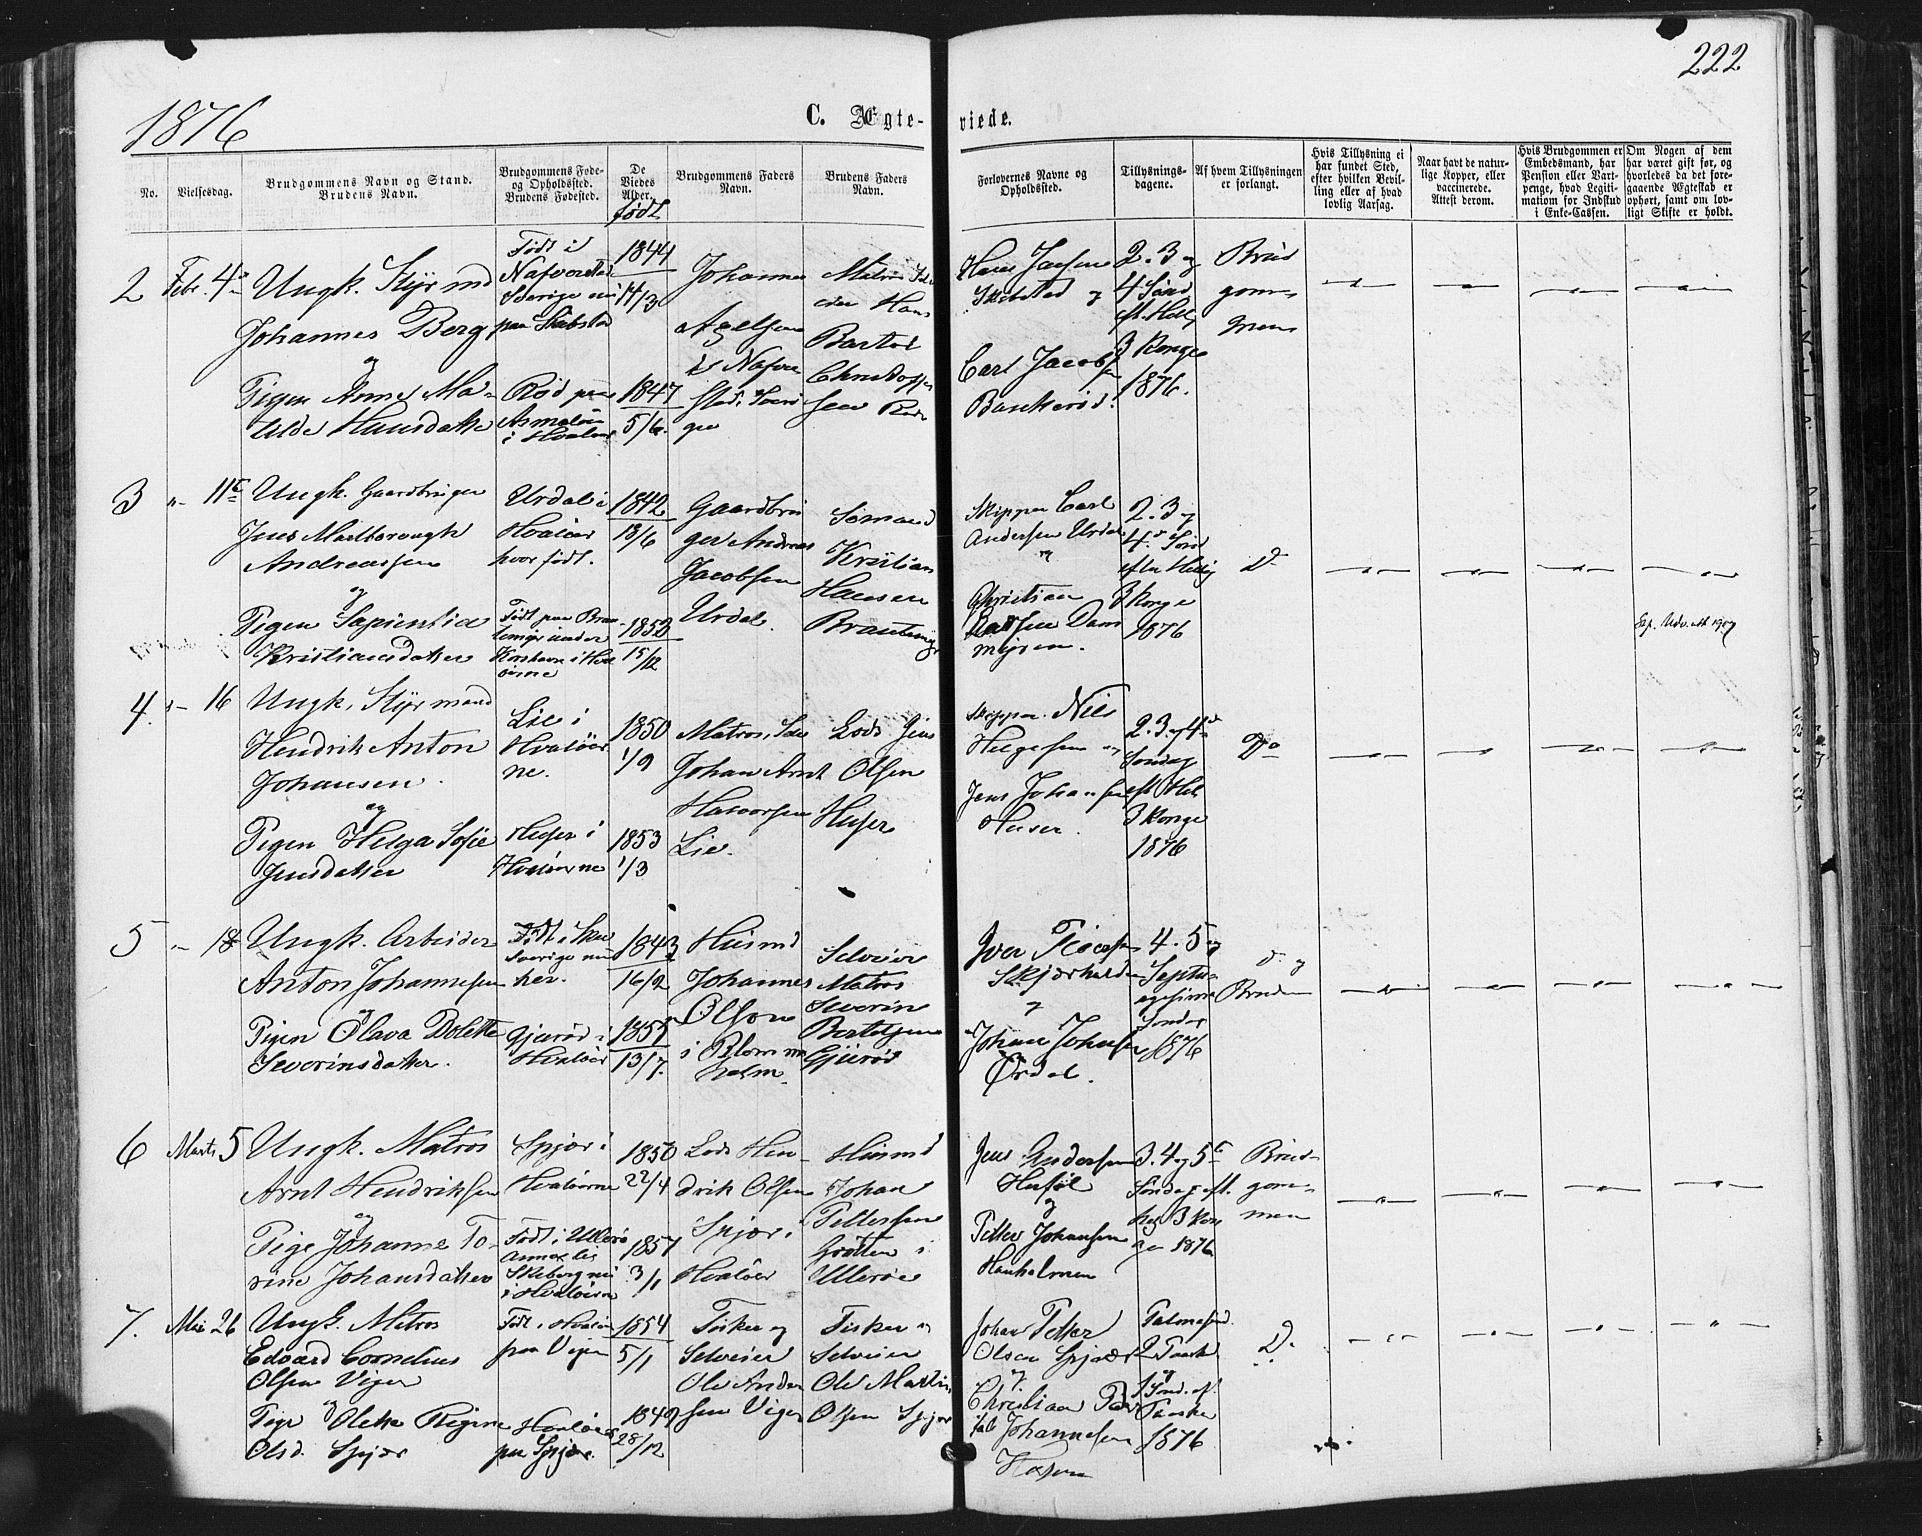 222
1876
C. Ægte-viede.
No.
Vielsesdag.
Brudgommens Navn og Stand.
Brudens Navn.
Brudgommens Føde-
og Opholdssted.
Brudens Fødested.
De
Viedes
Alder.
født
Brudgommens Faders
Navn.
Brudens Faders
Navn.
Forlovernes Navne og
Opholdssted.
Tillysnings-
dagene.
Af hvem Tillysningen
er forlangt.
Hvis Tillysning ei
har fundet Sted,
efter hvilken Bevil-
ling eller af hvad
lovlig Aarsag.
Naar havt de natur-
lige Kopper, eller
vaccinerede.
Attest derom.
Hvis Brudgommen er
Embedsmand, har
Pension eller Vart-
penge, hvad Legiti-
mation for Indskud
i Enke-Cassen.
Om Nogen af dem
har været gift før, og
hvorledes da det fore-
gaaende Ægteskab er
ophørt, samt om lov-
ligt Skifte er holdt.
2
Febr. 4
Ungk. Styrmd
Johannes Berg
og
Pigen Anne Ma-
tilde Hansdatter
Født i
Sverige nu
Rød paa
Asmaløen
i Hvaløer
1844
14/3
1847
5/6
Johannes
Axelsen
Matros
Hans
Hans Jansen
og
Carl Jacobsen
Bankerød.
2. 3 og
4 Sønd
eft. Hellig
3 Konger
1876.
Brud
gom-
men
3
" 11
Ungk. Gaardbruger
Jens Marlborough
Andreassen
og
Pigen Sapientia
Kristiansdatter
Urdal i
Hvaløer
hvor født.
Født paa
under
1842
13/6
1852
15/12
Gaardbru
ger Andreas
Jacobsen
Urdal.
Sømand
Kristian
Hansen
Skipper Carl
Andersen Urdal
og
Christian
2. 3 og
4. Sønd
efter Hellig
3 Konger
1876
Do
4.
" 16
Ungk. Styrmand
Hendrik Anton
Johansen.
og
Pigen Helga Sofie
Jensdatter
Lie i
Hvaløer
ne.
Huser i
Hvaløerne
1850
1/9
1853
1/3
Matros,
Johan Arnt
Halvorsen
Lie.
Lods Jens
Olsen
Huser
Skipper Nils
Helgesen og
Jens Johansen
Huser.
2. 3. og 4
Søndag
eft Hel
3 Konge
1876
Do
5
" 18
Ungk. Arbeider
Anton Johannesen
og
Pigen Olava Dolette
Severinsdatter.
Født i
Sverige nu
her.
Gjurød i
Hvaløer
1843
16/2
1855
13/7.
Husmd
Johannes
Olsen
i Blomm
holm.
Selveier
Matros
Severin
Bertelsen
Gjurød
Iver
Skjærhalden
og
Johan Johnsen
Ørdal.
4. 5 og
Septu-
agesima
Søndag
1876
D. og
Bruden
6
Marts 5
Ungk. Matros
Arnt Hendriksen
og
Pige Johanne To-
rine Johansdatter
Spjær i
Hvaløerne
Født i Ullerø
Annex til
Skeberg nu
i Hvaløerne
1850
22/4
1857
3/1
Lods Hen-
drik Olsen
Spjær i
Hvaløer
Husmd
Johan
Pettersen
Grøtten i
Ullerøe
Jens Andersen
og
Petter Johansen
Hauholmen
3. 4 og 5
Søndag eft.
hel 3 Kon
ger 1876
Brud-
gom-
men
7.
Mai 26
Ungk. Matros
Edvard Cornelius
Olsen Viger
og
Pige Olette Regine
Olsd. Spjær
Født i Hvaløer
paa Viger
Hvaløer
paa Spjær.
1854
5/1
1849
28/12
Fisker og
Selveier
Ole Ander
sen Viger
Fisker og
Selveier
Ole Martin
Olsen Spjær
Johan Petter
Olsen Spjær
og
Christian
Johannesen
Palmesønd.
2 Paaske
og
1 Sønd. ef.
Paaske
1876
D.